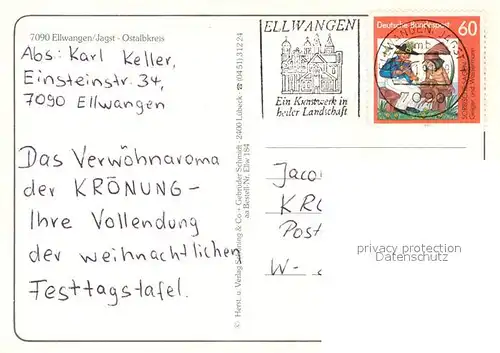 7090 Ellwangen/Jagst - Ostalbkreis
Abs: Karl Keller,
Einsteinstr. 34,
7090 Ellwangen
Das Verwöhnaroma
der KRÖNUNG –
Ihre Vollendung
der weihnachtlichen
Festtagstafel.
© Herst. u. Verlag Schöning & Co + Gebrüder Schmidt · 2400 Lübeck · ☎ (04 51) 3 12 24
aa Bestell-Nr. Ellw 184
ELLWANGEN
Ein Kunstwerk in
heiler Landschaft
Deutsche Bundespost 60
Jaco
KR
Post
W-
privacy protection
Datenschutz